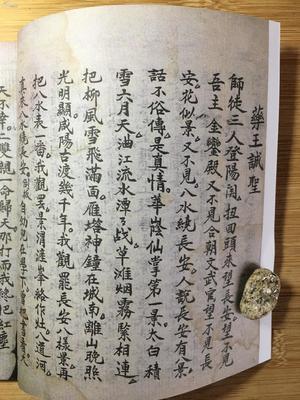 藥王誠聖
師徒三人登陽關扭回頭來望長安望不見
吾主金鑾殿又不見合朝文武寫望不見長
安花似景又不見八水繞長安人說長安有景
話不俗傳是真情華陰仙掌第一景太白積
雪六月天油江流水潭弓战草滩烟霧緊相連
把柳風雪飛滿面雁塔神鐘在城南離山晚照
光明顯咸陽古渡幾千年我觀罷長安八樣景再
把八水表一番我觀罷景渭涇峯絡作灶八道河
真來八水繞長安
天不幸二雙親命歸天那打